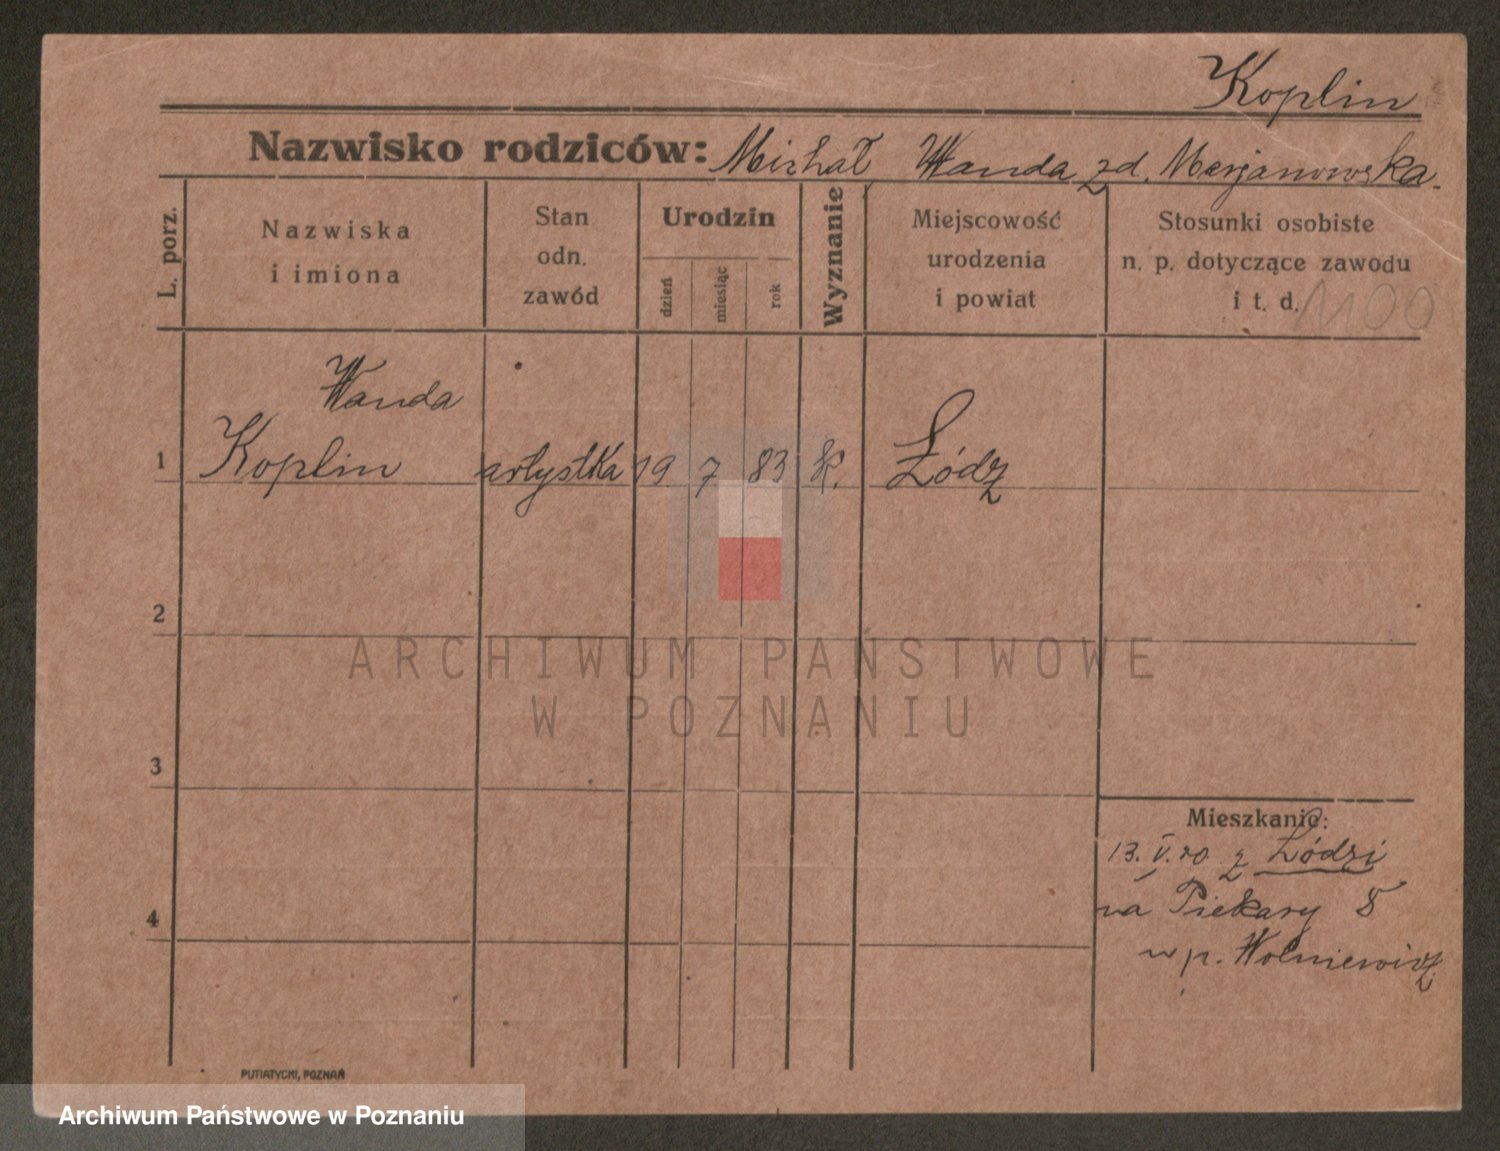 Koplin
Nazwisko rodziców: Michał Wanda zd. Marjanowska.
L. porz.
Nazwiska
i imiona
Stan
odn.
zawód
Urodzin
dzień
miesiąc
rok
Wyznanie
Miejscowość
urodzenia
i powiat
Stosunki osobiste
n. p. dotyczące zawodu
i t. d.
1100
Wanda
1 Koplin artystka 19 7 83 k. Łódz
2
3
4
Mieszkanie:
13. V. 20 z Łódzi
na Piekary 8
w p. Wolniewicz
ARCHIWUM PAŃSTWOWE
W POZNANIU
PUTIATYCKI, POZNAŃ
Archiwum Państwowe w Poznaniu